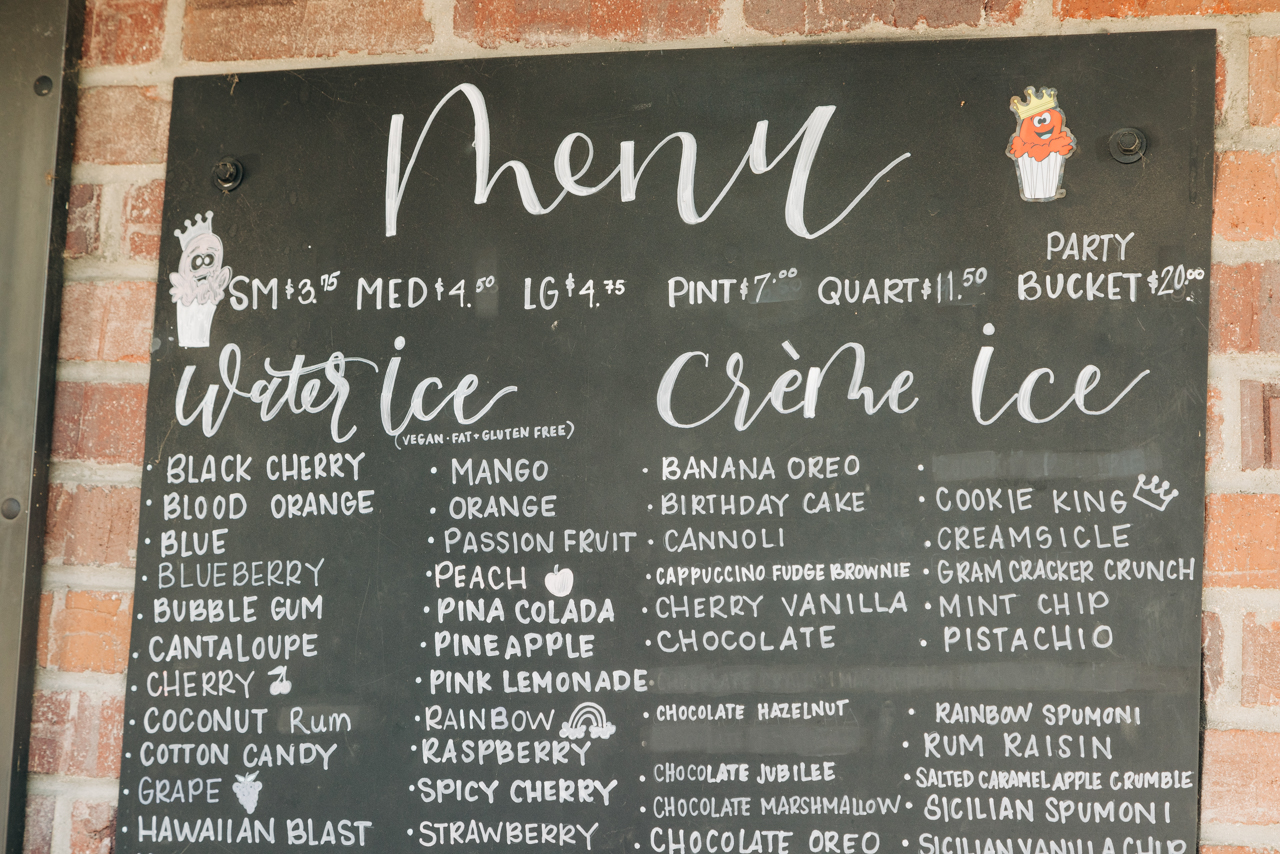 Menu
PARTY
SM $3.75 MED $4.50 LG $4.75 PINT $7.00 QUART $11.50 BUCKET $20.00
Water ice
(VEGAN · FAT + GLUTEN FREE)
• BLACK CHERRY
• BLOOD ORANGE
• BLUE
• BLUEBERRY
• BUBBLE GUM
• CANTALOUPE
• CHERRY
• COCONUT Rum
• COTTON CANDY
• GRAPE
• HAWAIIAN BLAST
• MANGO
• ORANGE
• PASSION FRUIT
• PEACH
• PINA COLADA
• PINEAPPLE
• PINK LEMONADE
• RAINBOW
• RASPBERRY
• SPICY CHERRY
• STRAWBERRY
Crème ice
• BANANA OREO
• BIRTHDAY CAKE
• CANNOLI
• CAPPUCCINO FUDGE BROWNIE
• CHERRY VANILLA
• CHOCOLATE
• CHOCOLATE HAZELNUT
• CHOCOLATE JUBILEE
• CHOCOLATE MARSHMALLOW
• CHOCOLATE OREO
• COOKIE KING
• CREAMSICLE
• GRAM CRACKER CRUNCH
• MINT CHIP
• PISTACHIO
• RAINBOW SPUMONI
• RUM RAISIN
• SALTED CARAMEL APPLE CRUMBLE
• SICILIAN SPUMONI
• SICILIAN VANILLA CHIP